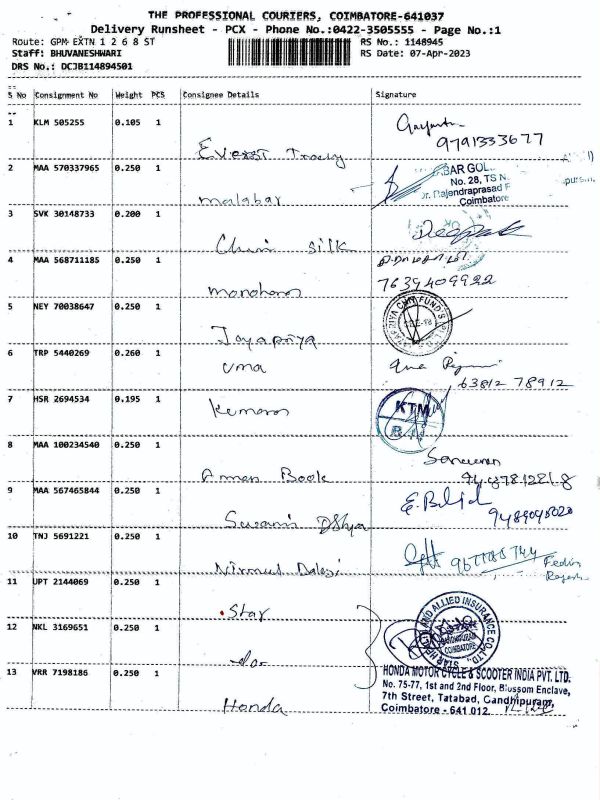 THE PROFESSIONAL COURIERS, COIMBATORE-641037
Delivery Runsheet - PCX - Phone No.:0422-3505555 - Page No.:1
Route: GPM EXTN 1 2 6 8 ST
RS No.: 1148945
Staff: BHUVANESHWARI
RS Date: 07-Apr-2023
DRS No.: DCJBI14894501
S No Consignment No Weight PCS Consignee Details Signature
1 KLM 505255 0.105 1
9791333677
2 MAA 570337965 0.250 1
malabar
BAR GOL
No. 28, TS N
Dr. Rajendraprasad
Coimbatore
3 SVK 30148733 0.200 1 Deepak
Silk
4 MAA 568711185 0.250 1
7639409922
5 NEY 70038647 0.250 1
CHIT FUNDS
Jayapriya
6 TRP 5440269 0.260 1 uma
63812 78912
7 HSR 2694534 0.195 1 Kumaran
KTM
8 MAA 100234540 0.250 1
Book
9 MAA 567465844 0.250 1
Swami
9489048020
10 TNJ 5691221 0.250 1
Nirmal
11 UPT 2144069 0.250 1
Star
STAR HEALTH AND ALLIED INSURANCE CO. LTD.,
GANDHIPURAM
COIMBATORE
12 NKL 3169651 0.250 1
-do-
13 VRR 7198186 0.250 1
Honda
HONDA MOTOR CYCLE & SCOOTER INDIA PVT. LTD.
No. 75-77, 1st and 2nd Floor, Blossom Enclave,
7th Street, Tatabad, Gandhipuram,
Coimbatore - 641 012.